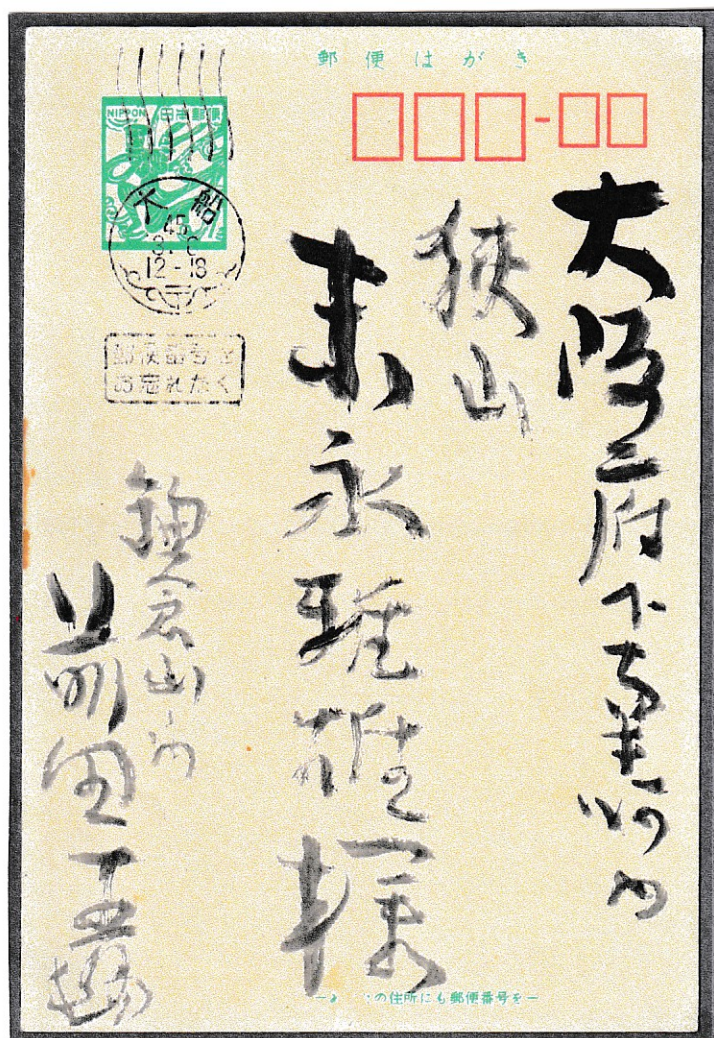 郵便はがき
NIPPON 日本郵便
大船
45
3.6
12-18
郵便番号を
お忘れなく
大阪府下南河内
狭山
末永雅雄様
鎌倉山ノ内
前田青邨
の住所にも郵便番号を